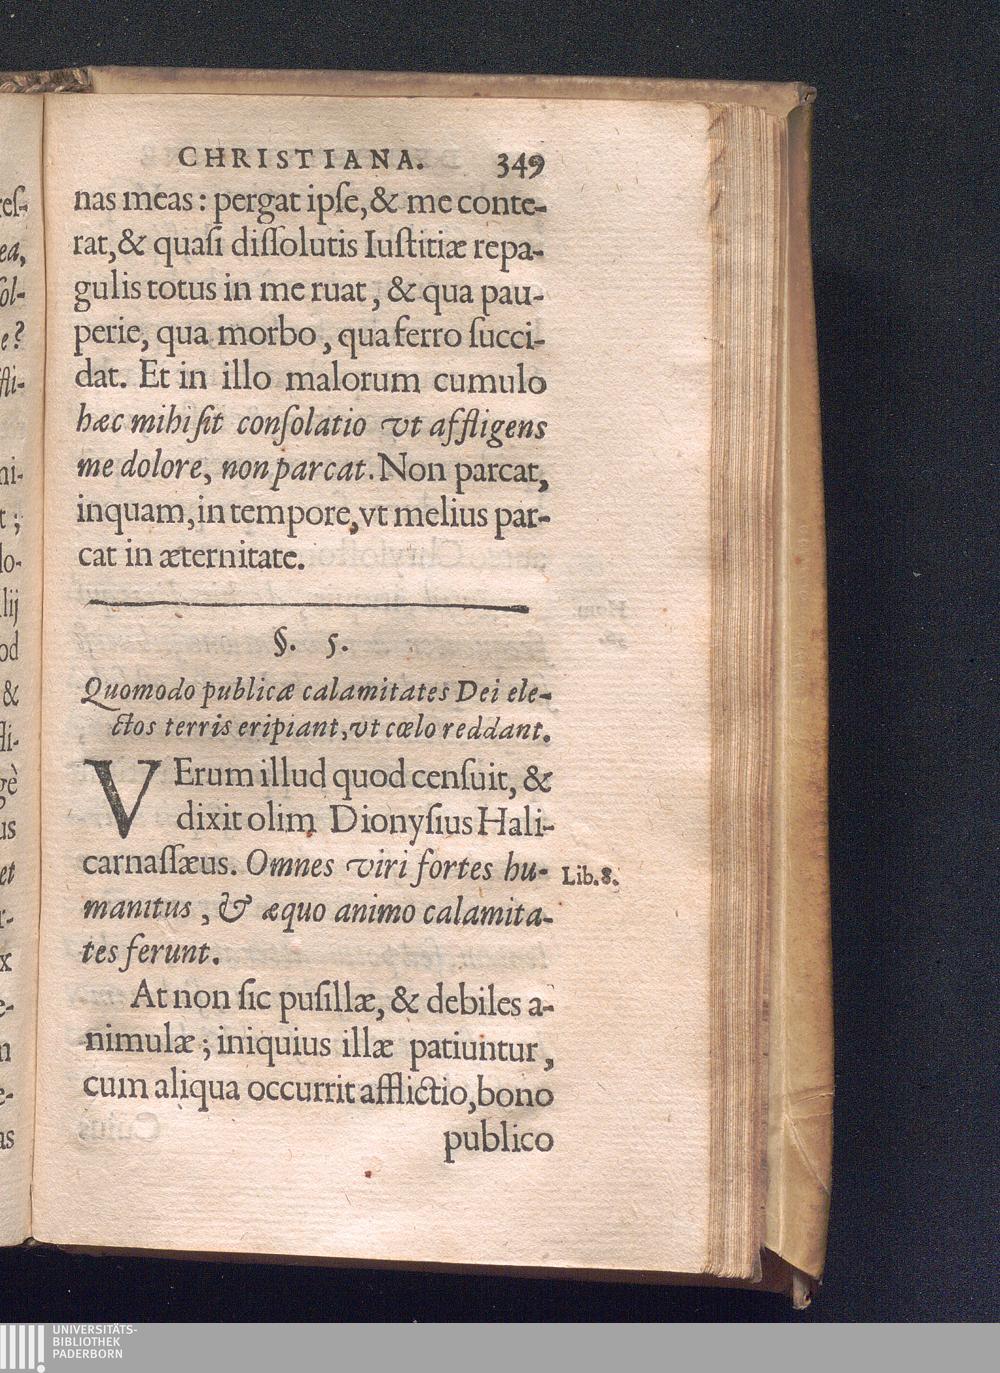 CHRISTIANA. 349
nas meas : pergat ipſe, & me conte-
rat, & quaſi diſſolutis Iuſtitiæ repa-
gulis totus in me ruat, & qua pau-
perie, qua morbo, qua ferro ſucci-
dat. Et in illo malorum cumulo
hæc mihi ſit conſolatio vt affligens
me dolore, non parcat. Non parcat,
inquam, in tempore, vt melius par-
cat in æternitate.
§. 5.
Quomodo publicæ calamitates Dei ele-
ctos terris eripiant, vt cœlo reddant.
VErum illud quod cenſuit, &
dixit olim Dionyſius Hali-
carnaſſæus. Omnes viri fortes hu-
Lib. 8.
manitus, & æquo animo calamita-
tes ferunt.
At non ſic puſillæ, & debiles a-
nimulæ ; iniquius illæ patiuntur,
cum aliqua occurrit afflictio, bono
publico
UNIVERSITÄTS-
BIBLIOTHEK
PADERBORN